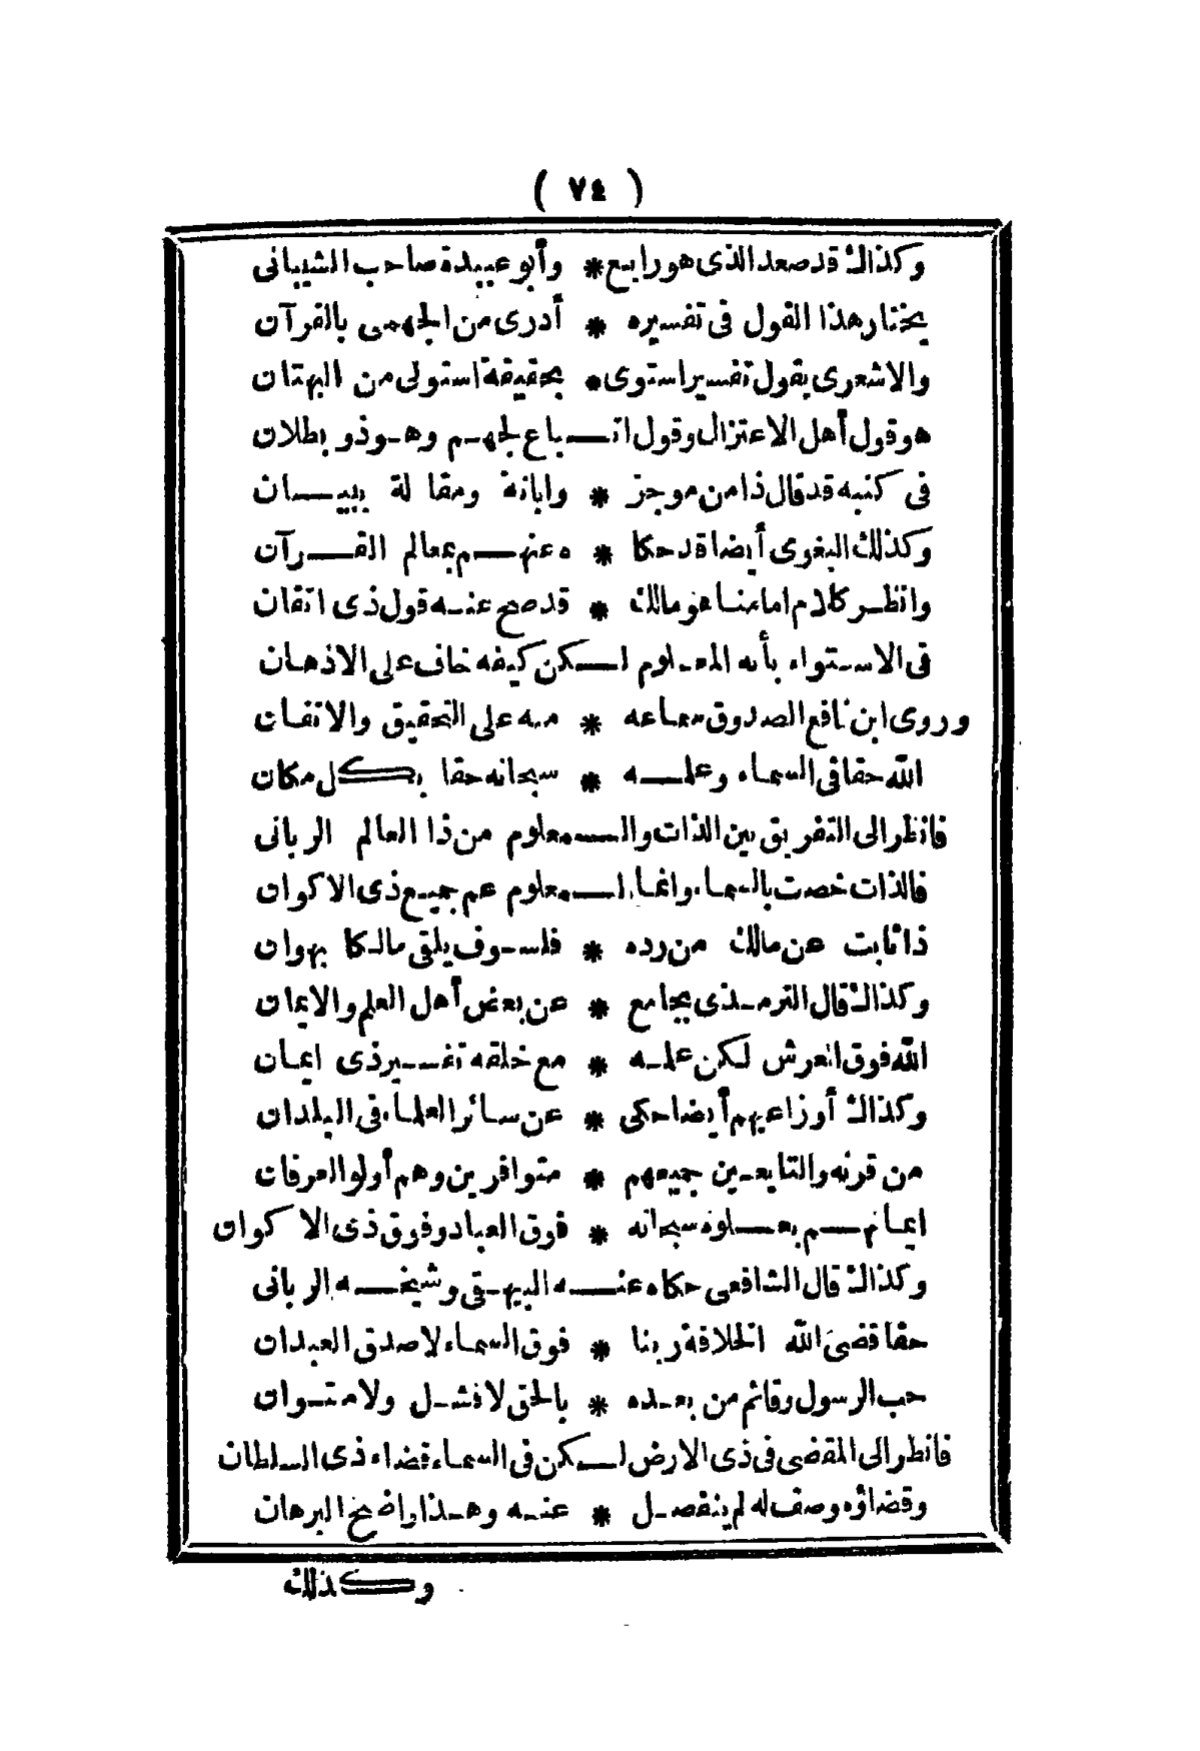 ( ٧٤ )
وكذاك قد صعد الذى هو رابع * وأبو عبيدة صاحب الشيبانى
يختار هذا القول فى تفسيره * أدرى من الجهمى بالقرآن
والاشعرى يقول تفسير استوى * بحقيقة استولى من البهتان
هو قول أهل الاعتزال وقول اتـباع لجهـم وهـو ذو بطلان
فى كتبه قد قال ذا من موجز * وابانة ومقالة ببيـــان
وكذلك البغوى أيضا قد حكا * ه عنهـــم بمعالم القـــرآن
وانظـر كلام امامنا هو مالك * قد صح عنـه قول ذى اتقان
فى الاسـتواء بأنه المعـلوم لـكن كيفه خاف على الاذهـان
وروى ابن نافع الصدوق سماعه * منه على التحقيق والاتقـان
الله حقا فى السماء وعلمـــه * سبحانه حقا بكـل مكان
فانظر الى التفريق بين الذات والـــمعلوم من ذا العالم الربانى
فالذات خصت بالسماء وانما الـــمعلوم عم جميـع ذى الاكوان
ذا ثابت عن مالك من رده * فلسـوف يلقى مالـكا بهوان
وكذاك قال الترمـذى بجامع * عن بعض أهل العلم والايمان
الله فوق العرش لـكن علمـه * مع خلقه تفسـير ذى ايمـان
وكذاك أوزاعيهم أيضا حكى * عن سائر العلماء فى البلدان
من قرنه والتابعـين جميعهم * متوافرين وهم أولو العرفان
ايمـانهـــم بعـــلوه سبحانه * فوق العباد وفوق ذى الاكوان
وكذاك قال الشافعى حكاه عنـــه البيهـقى وشيخـــه الربانى
حقا قضى الله الخلافة ربنا * فوق السماء لاصدق العبدان
حب الرسول وقائم من بعـده * بالحق لا فشـل ولا متـوان
فانظر الى المقضى فى ذى الارض لـكن فى السماء قضاء ذى السلطان
وقضاؤه وصف له لم ينفصـل * عنـه وهـذا واضح البرهان
وكذلك